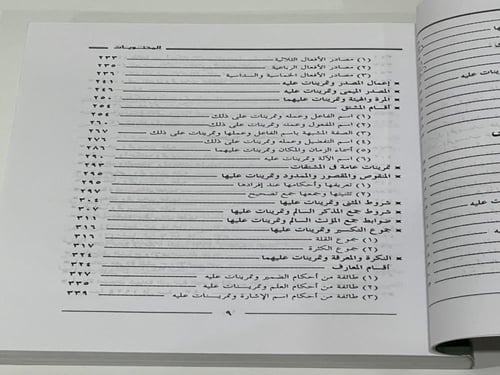 المحتويات
(١) مصادر الأفعال الثلاثية ٢٣٣
(٢) مصادر الأفعال الرباعية ٢٣٥
(٣) مصادر الأفعال الخماسية والسداسية ٢٣٦
× إعمال المصدر وتمرينات عليه ٢٤١
× المصدر الميمى وتمرينات عليه ٢٤٦
× المرة والهيئة وتمرينات عليهما ٢٥١
× أقسام المشتق ٢٥٤
(١) اسم الفاعل وعمله وتمرينات على ذلك ٢٥٤
(٢) اسم المفعول وعمله وتمرينات على ذلك ٢٦٠
(٣) الصفة المشبهة باسم الفاعل وعملها وتمرينات على ذلك ٢٦٧
(٤) اسم التفضيل وعمله وتمرينات على ذلك ٢٧٦
(٥) أسماء الزمان والمكان وتمرينات عليهما ٢٨٦
(٦) اسم الآلة وتمرينات عليه ٢٩٠
× تمرينات عامة فى المشتقات ٢٩٣
× المنقوص والمقصور والممدود وتمرينات عليها
(١) تعريفها وأحكامها عند إفرادها
(٢) تثنيتها وجمعها جمع تصحيح ٢٩٧
× شروط المثنى وتمرينات عليها ٣٠٤
× شروط جمع المذكر السالم وتمرينات عليها ٣٠٧
× ضوابط جمع المؤنث السالم وتمرينات عليها ٣١١
× جموع التكسير وتمرينات عليها ٣١٦
(١) جموع القلة ٣١٦
(٢) جموع الكثرة ٣١٧
× النكرة والمعرفة وتمرينات عليهما ٣٢٤
أقسام المعارف ٣٢٤
(١) طائفة من أحكام الضمير وتمرينات عليه ٣٢٧
(٢) طائفة من أحكام العلم وتمرينات عليه ٣٣٥
(٣) طائفة من أحكام اسم الإشارة وتمرينات عليه ٣٣٩
٩